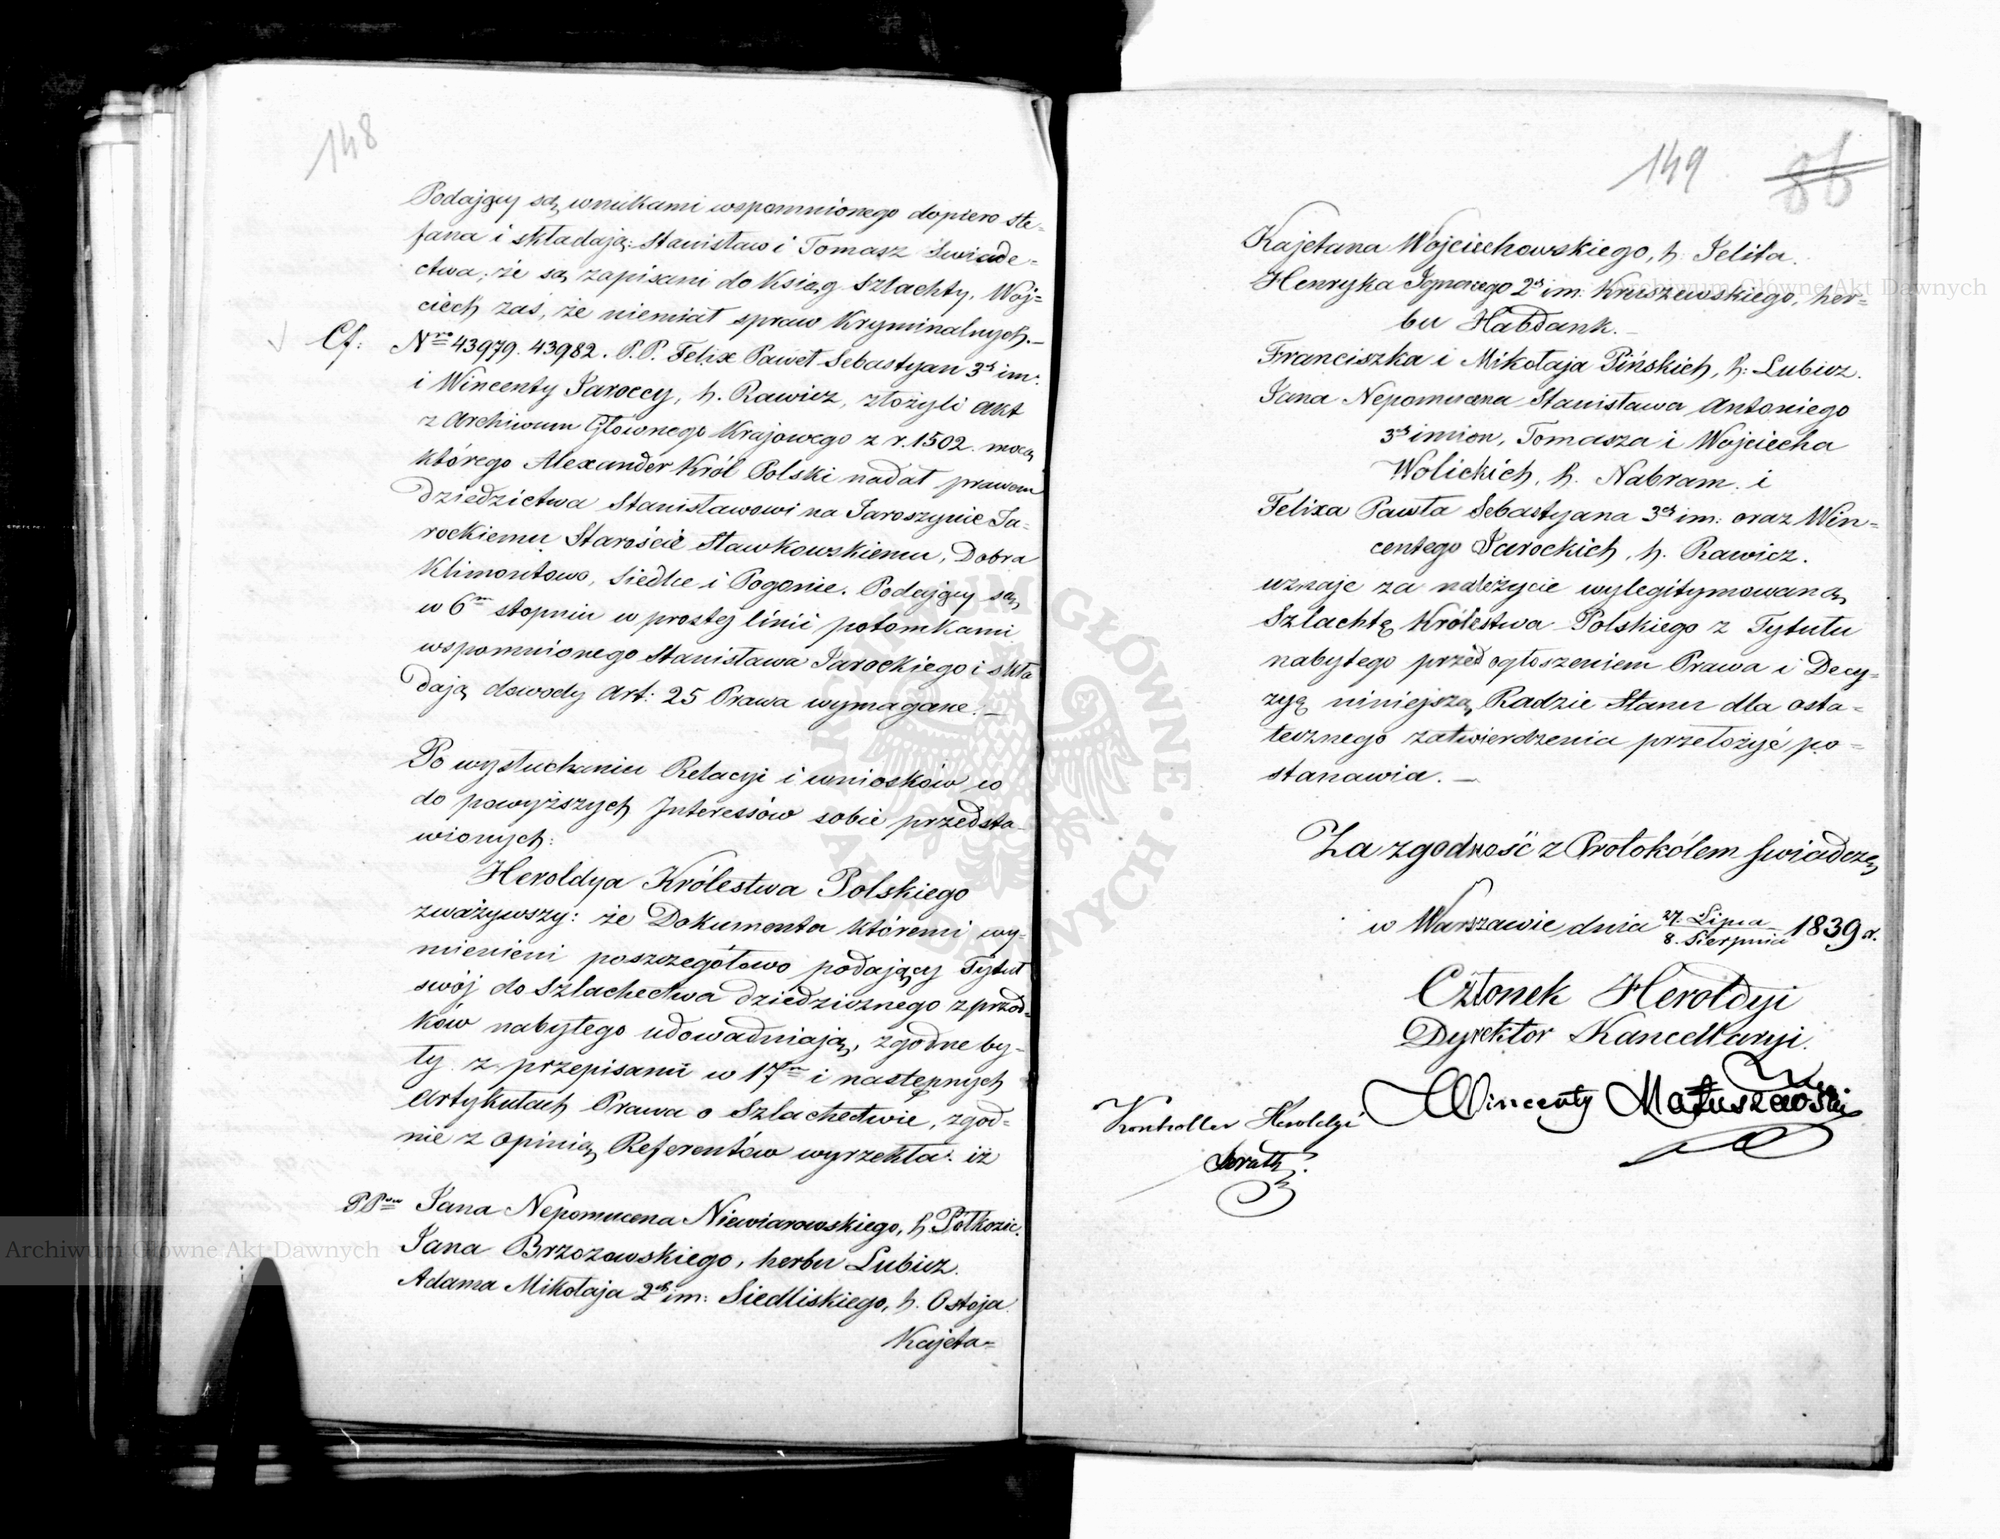 148
Podający są wnukami wspomnionego dopiero Ste-
fana i składają: Stanisław i Tomasz Świade-
ctwa, że są zapisani do Ksiąg Szlachty, Woj-
ciech zaś, że niemiał spraw Kryminalnych.—
Cf: Nro 43979. 43982. P.P. Felix Paweł Sebastyan 3ch im:
i Wincenty Jaroccy, h. Rawicz, złożyli akt
z Archiwum Głównego Krajowego z r. 1502. mocą
którego Alexander Król Polski nadał prawem
dziedzictwa Stanisławowi na Jaroszynie Ja-
rockiemu, Staroście Sławkowskiemu, Dobra
Klimontowo, Siedlce i Pogonie. Podający są
w 6m stopniu w prostej linii potomkami
wspomnionego Stanisława Jarockiego i skła
dają dowody Art: 25 Prawa wymagane.—
Po wysłuchaniu Relacyi i wniosków co
do powyższych Interessów sobie przedsta-
wionych:
Heroldya Królestwa Polskiego
zważywszy: że Dokumenta któremi wy-
mienieni poszczegółowo podający Tytuł
swój do Szlachectwa dziedzicznego z przod-
ków nabytego udowadniają, zgodne by-
ły z przepisami w 17m i następnych
Artykułach Prawa o Szlachectwie, zgod-
nie z opinią Referentów wyrzekła: iż
PPów Jana Nepomucena Niewiarowskiego, h. Półkozic.
Jana Brzozowskiego, herbu Lubicz.
Adama Mikołaja 2ch im: Siedliskiego, h. Ostoja.
Kajeta-
149 86
Kajetana Wojciechowskiego, h. Jelita.
Henryka Ignacego 2ch im. Kruszewskiego, her-
bu Habdank.—
Franciszka i Mikołaja Pińskich, h: Lubicz.
Jana Nepomucena Stanisława Antoniego
3ch imion, Tomasza i Wojciecha
Wolickich, h. Nabram. i
Felixa Pawła Sebastyana 3ch im: oraz Win-
centego Jarockich, h. Rawicz.
uznaje za należycie wylegitymowaną
Szlachtę Królestwa Polskiego z Tytułu
nabytego przed ogłoszeniem Prawa i Decy-
zyą niniejszą Radzie Stanu dla osta-
tecznego zatwierdzenia przełożyć po-
stanawia.—
Za zgodność z Protokółem świadczą
w Warszawie dnia 27. Lipca / 8. Sierpnia 1839 r.
Członek Heroldyi
Dyrektor Kancellaryi.
Wincenty Matuszewski
Kontroller Heroldyi
Archiwum Główne Akt Dawnych
Archiwum Główne Akt Dawnych
ARCHIWUM GŁÓWNE AKT DAWNYCH